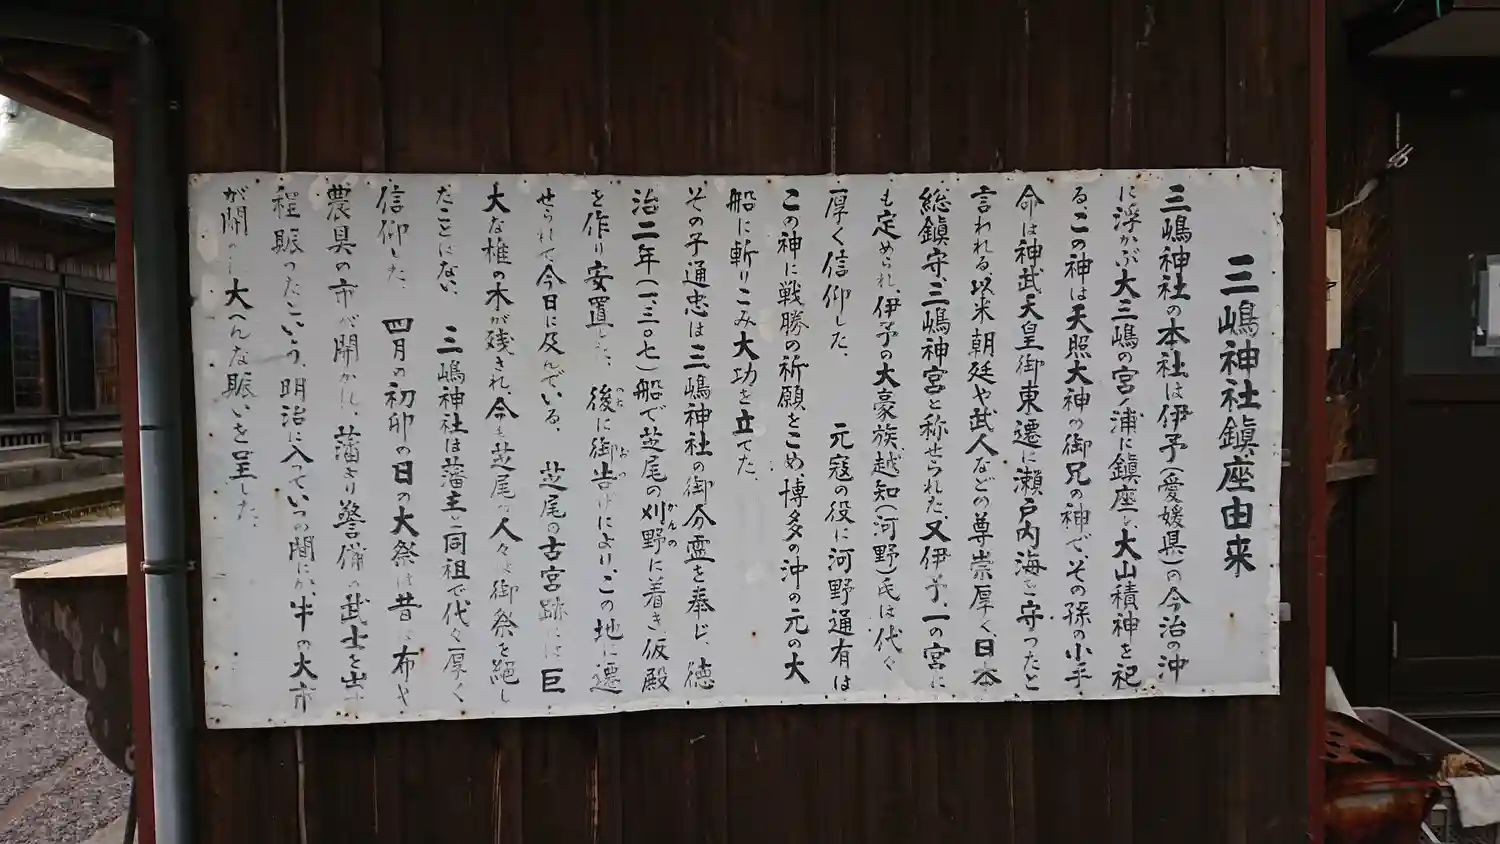 三嶋神社鎮座由来
三嶋神社の本社は伊予(愛媛県)の今治の沖
に浮かぶ大三嶋の宮ノ浦に鎮座し、大山積神を祀
る、この神は天照大神の御兄の神で、その孫の小手
命は神武天皇御東遷に瀬戸内海を守つたと
言われる、以来朝廷や武人などの尊崇厚く、日本
総鎮守三嶋神宮と称せられた、又伊予、一の宮に
も定められ、伊予の大豪族越知(河野)氏は代々
厚く信仰した、 元寇の役に河野通有は
この神に戦勝の祈願をこめ、博多の沖の元の大
船に斬りこみ大功を立てた、
その子通忠は三嶋神社の御分霊を奉じ、徳
治二年(一、三〇七)船で芝尾の刈野に着き仮殿
かんの
を作り安置した、 後に御告げによりこの地に遷
のち おつ
せられて今日に及んでいる、 芝尾の古宮跡には巨
大な椎の木が残され、今も芝尾の人々は御祭を絶し
たことはない、 三嶋神社は藩主と同祖で代々厚く
信仰した、 四月の初卯の日の大祭は昔は布や
農具の市が開かれ、藩より警備の武士を出
程賑つたという、明治に入つていつの間にか、牛の大市
が開かれ大へんな賑いを呈した、